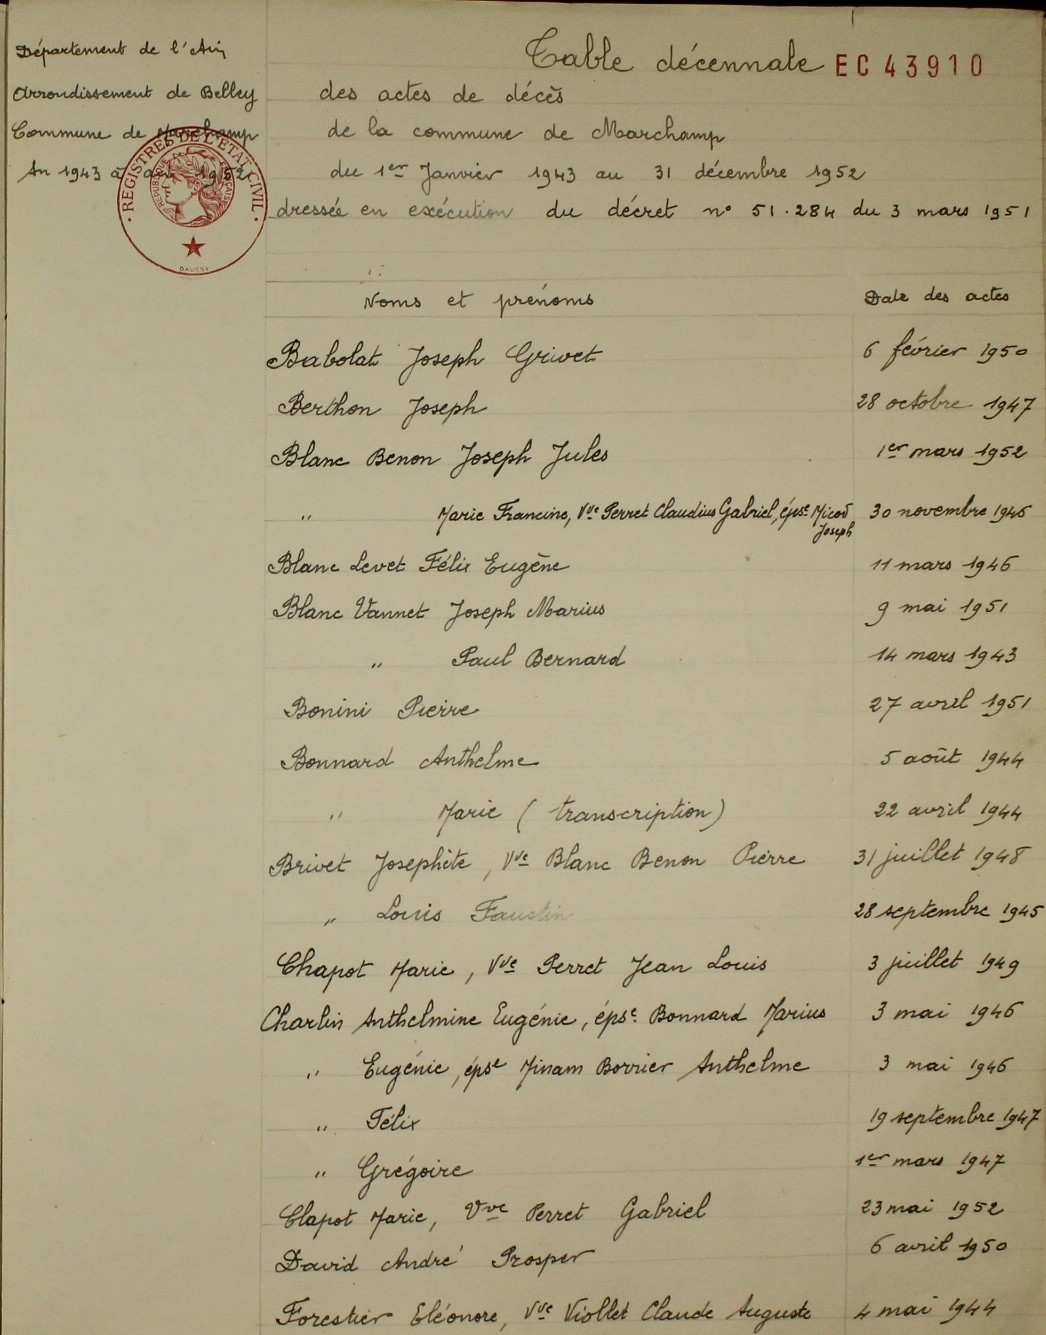 Département de l'Ain
Arrondissement de Belley
Commune de Marchamp
An 1943 à an 1952
REGISTRES DE L'ETAT CIVIL
REPUBLIQUE FRANÇAISE
Table décennale EC 43910
des actes de décès
de la commune de Marchamp
du 1er Janvier 1943 au 31 décembre 1952
dressée en exécution du décret n° 51.284 du 3 mars 1951
Noms et prénoms Date des actes
Babolat Joseph Grivet 6 février 1950
Berthon Joseph 28 octobre 1947
Blanc Benon Joseph Jules 1er mars 1952
" Marie Francine, Vve Perret Claudius Gabriel, épse Micod Joseph 30 novembre 1946
Blanc Levet Félix Eugène 11 mars 1946
Blanc Vannet Joseph Marius 9 mai 1951
" Paul Bernard 14 mars 1943
Bonini Pierre 27 avril 1951
Bonnard Anthelme 5 août 1944
" Marie (transcription) 22 avril 1944
Brivet Josephte, Vve Blanc Benon Pierre 31 juillet 1948
" Louis Faustin 28 septembre 1945
Chapot Marie, Vve Perret Jean Louis 3 juillet 1949
Charlin Anthelmine Eugénie, épse Bonnard Marius 3 mai 1946
" Eugénie, épse Minam Borrier Anthelme 3 mai 1946
" Félix 19 septembre 1947
" Grégoire 1er mars 1947
Clapot Marie, Vve Perret Gabriel 23 mai 1952
David André Prosper 6 avril 1950
Forestier Eléonore, Vve Viollet Claude Auguste 4 mai 1944